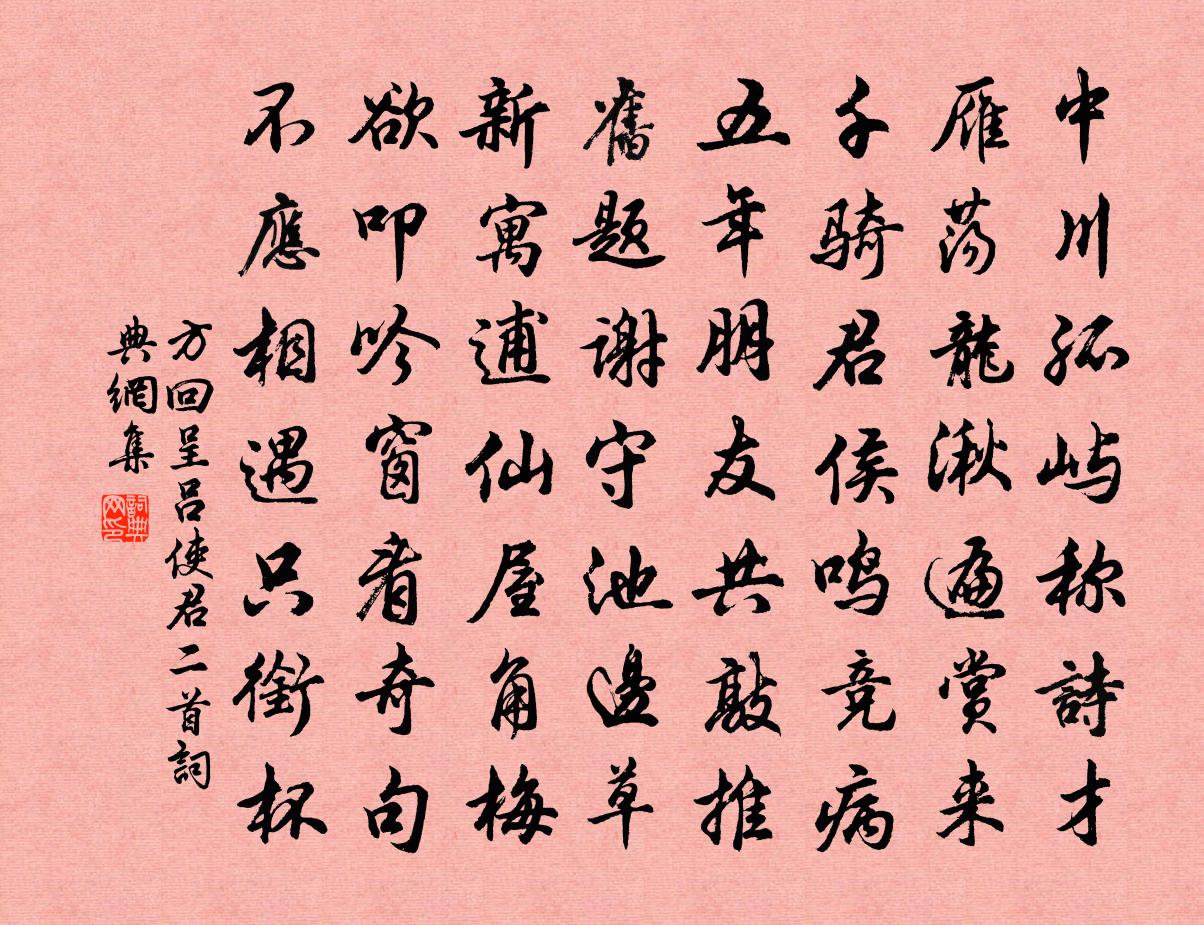 中川孤屿称詩才
雁荡龍湫遍赏来
千骑君侯鸣竞病
五年朋友共敲推
舊题谢守池邊草
新寓逋仙屋角梅
欲叩吟窗看奇句
不應相遇只銜杯
方回呈吕使君二首詞
典網集
詞典
网印